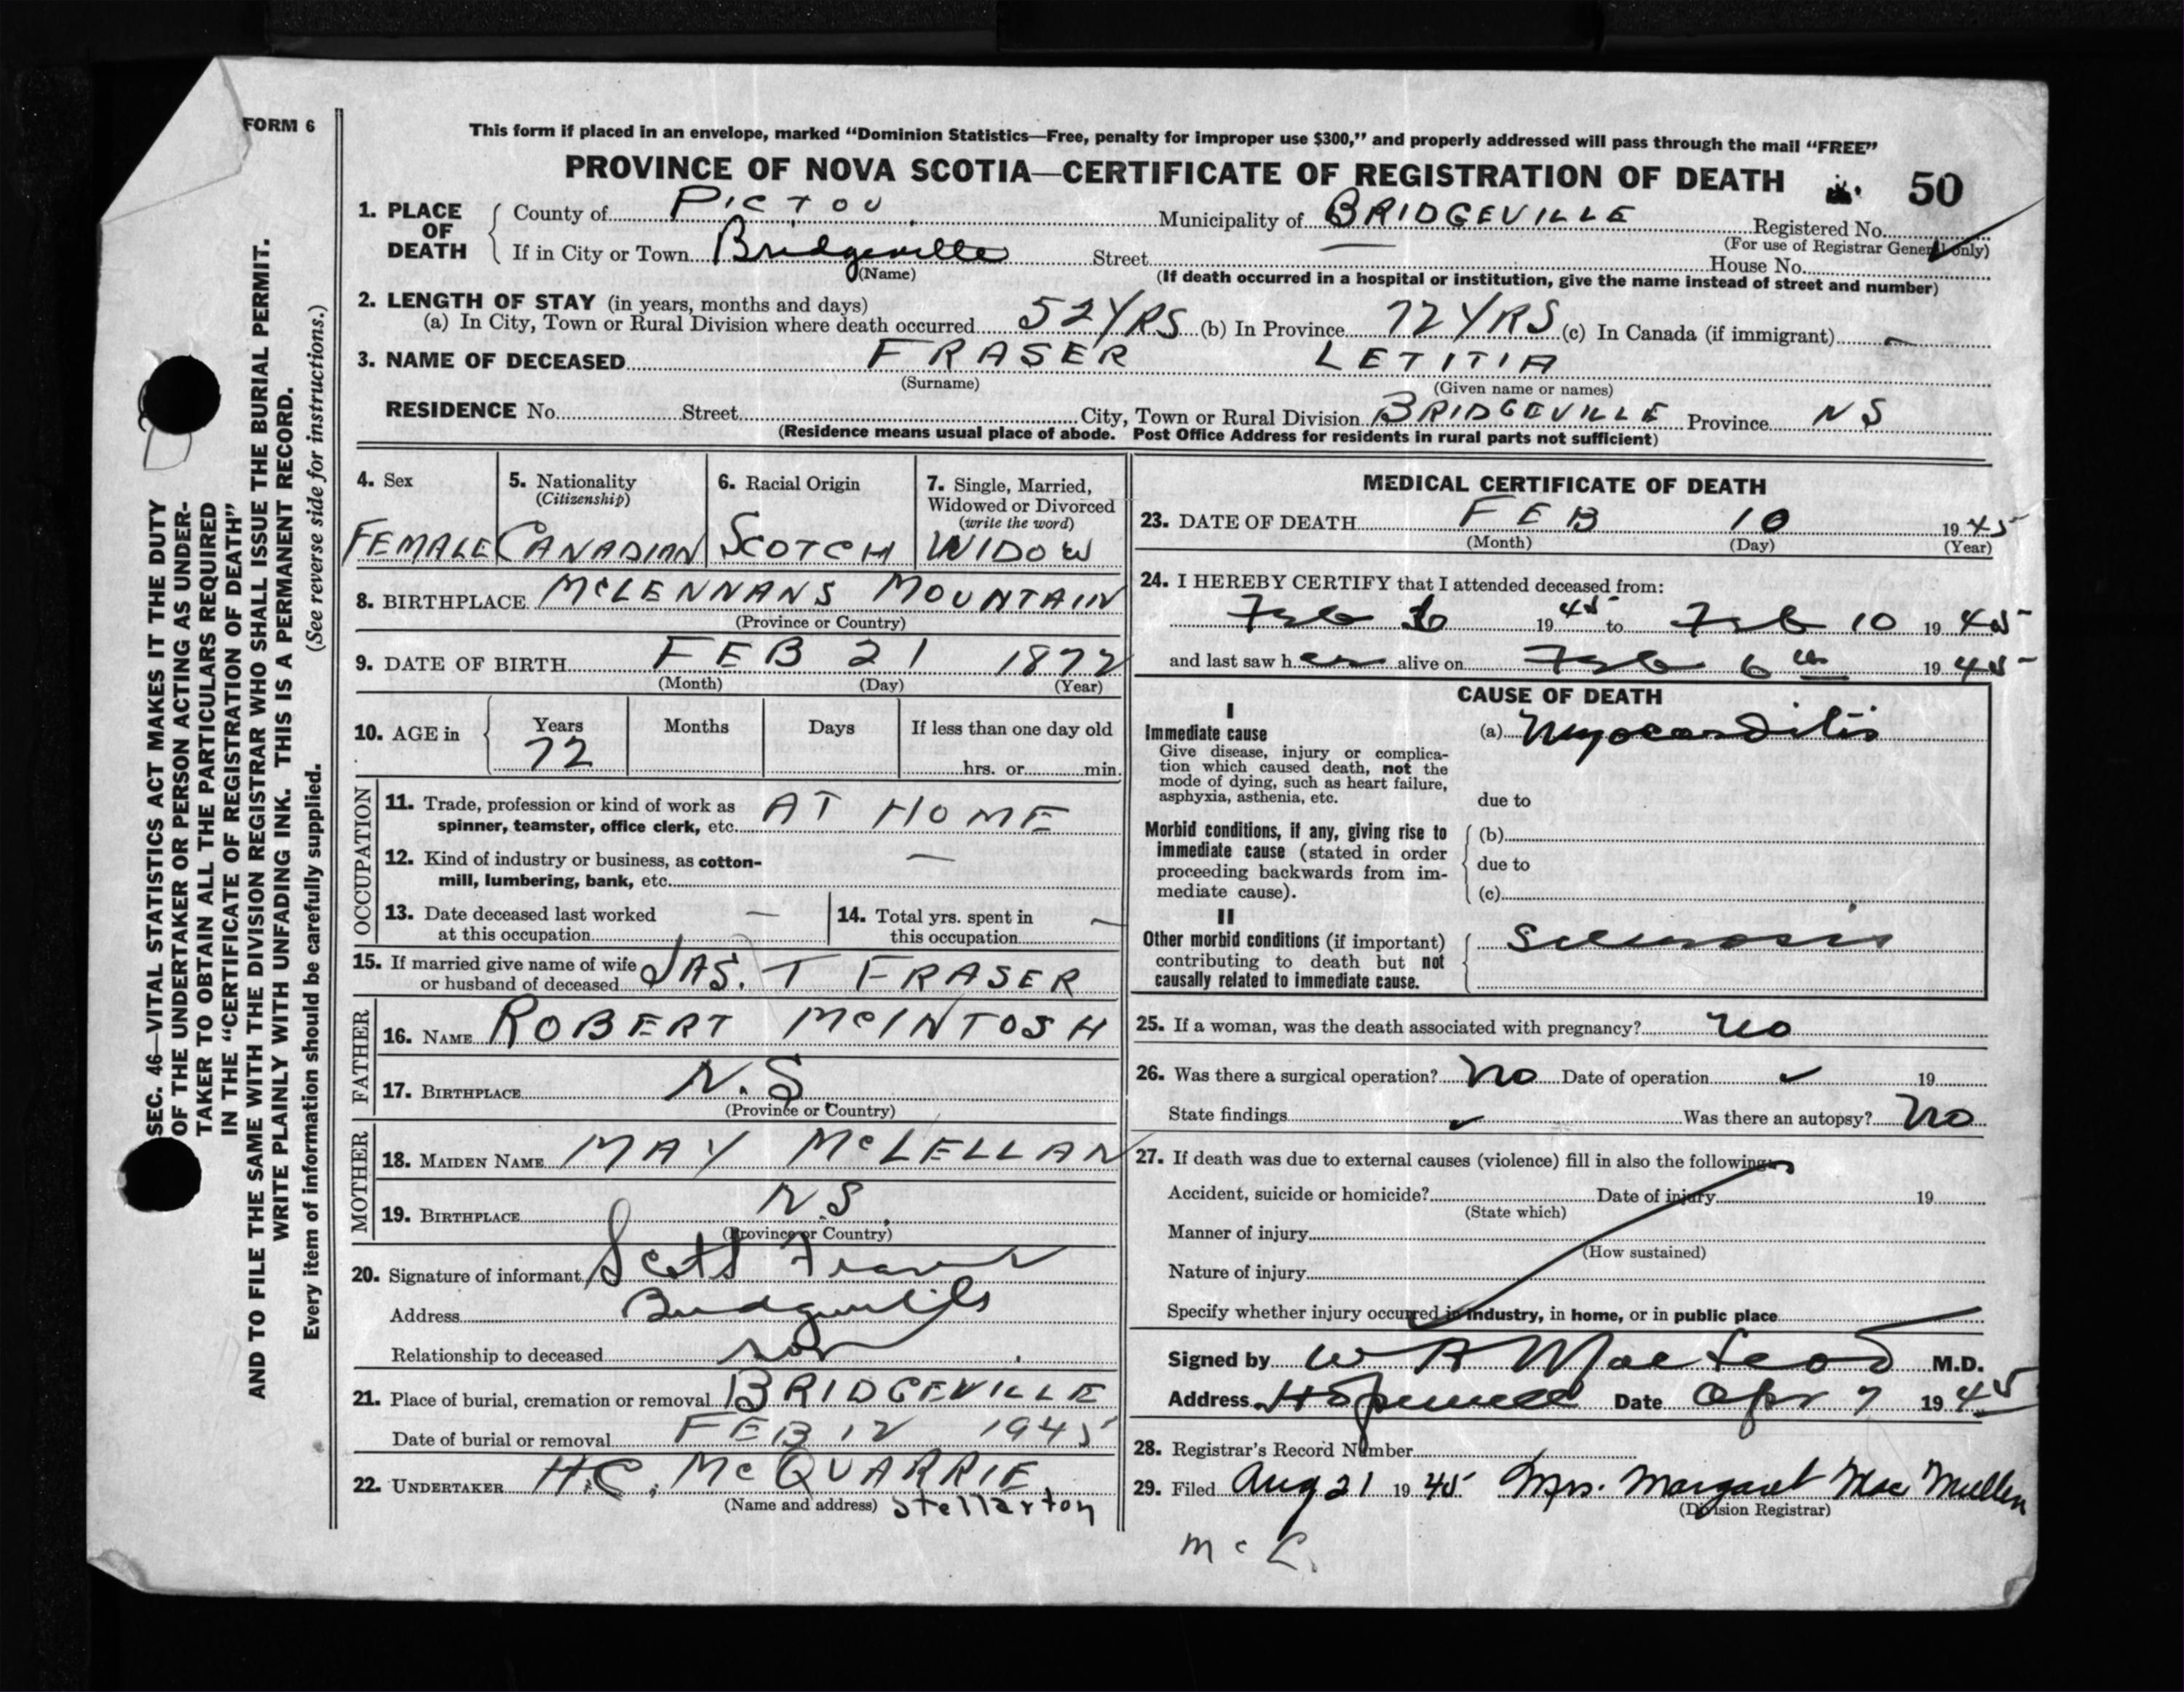 FORM 6
This form if placed in an envelope, marked “Dominion Statistics—Free, penalty for improper use $300,” and properly addressed will pass through the mail “FREE”
PROVINCE OF NOVA SCOTIA—CERTIFICATE OF REGISTRATION OF DEATH 50
1. PLACE OF DEATH
County of PICTOU Municipality of BRIDGEVILLE Registered No.
(For use of Registrar General only)
If in City or Town Bridgeville Street — House No.
(Name) (If death occurred in a hospital or institution, give the name instead of street and number)
2. LENGTH OF STAY (in years, months and days)
(a) In City, Town or Rural Division where death occurred 52 YRS (b) In Province 72 YRS (c) In Canada (if immigrant) —
3. NAME OF DECEASED FRASER LETITIA
(Surname) (Given name or names)
RESIDENCE No. Street City, Town or Rural Division BRIDGEVILLE Province NS
(Residence means usual place of abode. Post Office Address for residents in rural parts not sufficient)
4. Sex
FEMALE
5. Nationality
(Citizenship)
CANADIAN
6. Racial Origin
SCOTCH
7. Single, Married,
Widowed or Divorced
(write the word)
WIDOW
8. BIRTHPLACE MCLENNANS MOUNTAIN
(Province or Country)
9. DATE OF BIRTH FEB 21 1872
(Month) (Day) (Year)
10. AGE in
Years Months Days If less than one day old
72 hrs. or min.
OCCUPATION
11. Trade, profession or kind of work as
spinner, teamster, office clerk, etc. AT HOME
12. Kind of industry or business, as cotton-
mill, lumbering, bank, etc. —
13. Date deceased last worked
at this occupation —
14. Total yrs. spent in
this occupation —
15. If married give name of wife
or husband of deceased JAS. T FRASER
FATHER
16. NAME ROBERT MCINTOSH
17. BIRTHPLACE N.S.
(Province or Country)
MOTHER
18. MAIDEN NAME MAY MCLELLAN
19. BIRTHPLACE N.S.
(Province or Country)
20. Signature of informant Scott Fraser
Address Bridgeville
Relationship to deceased son
21. Place of burial, cremation or removal BRIDGEVILLE
Date of burial or removal FEB 12 1945
22. UNDERTAKER H.C. MCQUARRIE
(Name and address) Stellarton
MEDICAL CERTIFICATE OF DEATH
23. DATE OF DEATH FEB 10 1945
(Month) (Day) (Year)
24. I HEREBY CERTIFY that I attended deceased from:
Feb 6 1945 to Feb 10 1945
and last saw her alive on Feb 6th 1945
CAUSE OF DEATH
I
Immediate cause
Give disease, injury or complica-
tion which caused death, not the
mode of dying, such as heart failure,
asphyxia, asthenia, etc.
(a) Myocarditis
due to
Morbid conditions, if any, giving rise to
immediate cause (stated in order
proceeding backwards from im-
mediate cause).
(b)
due to
(c)
II
Other morbid conditions (if important)
contributing to death but not
causally related to immediate cause.
Sclerosis
25. If a woman, was the death associated with pregnancy? no
26. Was there a surgical operation? no Date of operation 19
State findings Was there an autopsy? no
27. If death was due to external causes (violence) fill in also the following:
Accident, suicide or homicide? Date of injury 19
(State which)
Manner of injury
(How sustained)
Nature of injury
Specify whether injury occurred in industry, in home, or in public place
Signed by W A MacLeod M.D.
Address Hopewell Date Apr 7 1945
28. Registrar's Record Number
29. Filed Aug 21 1945 Mrs. Margaret MacMullen
(Division Registrar)
McL.
SEC. 46—VITAL STATISTICS ACT MAKES IT THE DUTY
OF THE UNDERTAKER OR PERSON ACTING AS UNDER-
TAKER TO OBTAIN ALL THE PARTICULARS REQUIRED
IN THE “CERTIFICATE OF REGISTRATION OF DEATH”
AND TO FILE THE SAME WITH THE DIVISION REGISTRAR WHO SHALL ISSUE THE BURIAL PERMIT.
WRITE PLAINLY WITH UNFADING INK. THIS IS A PERMANENT RECORD.
Every item of information should be carefully supplied. (See reverse side for instructions.)